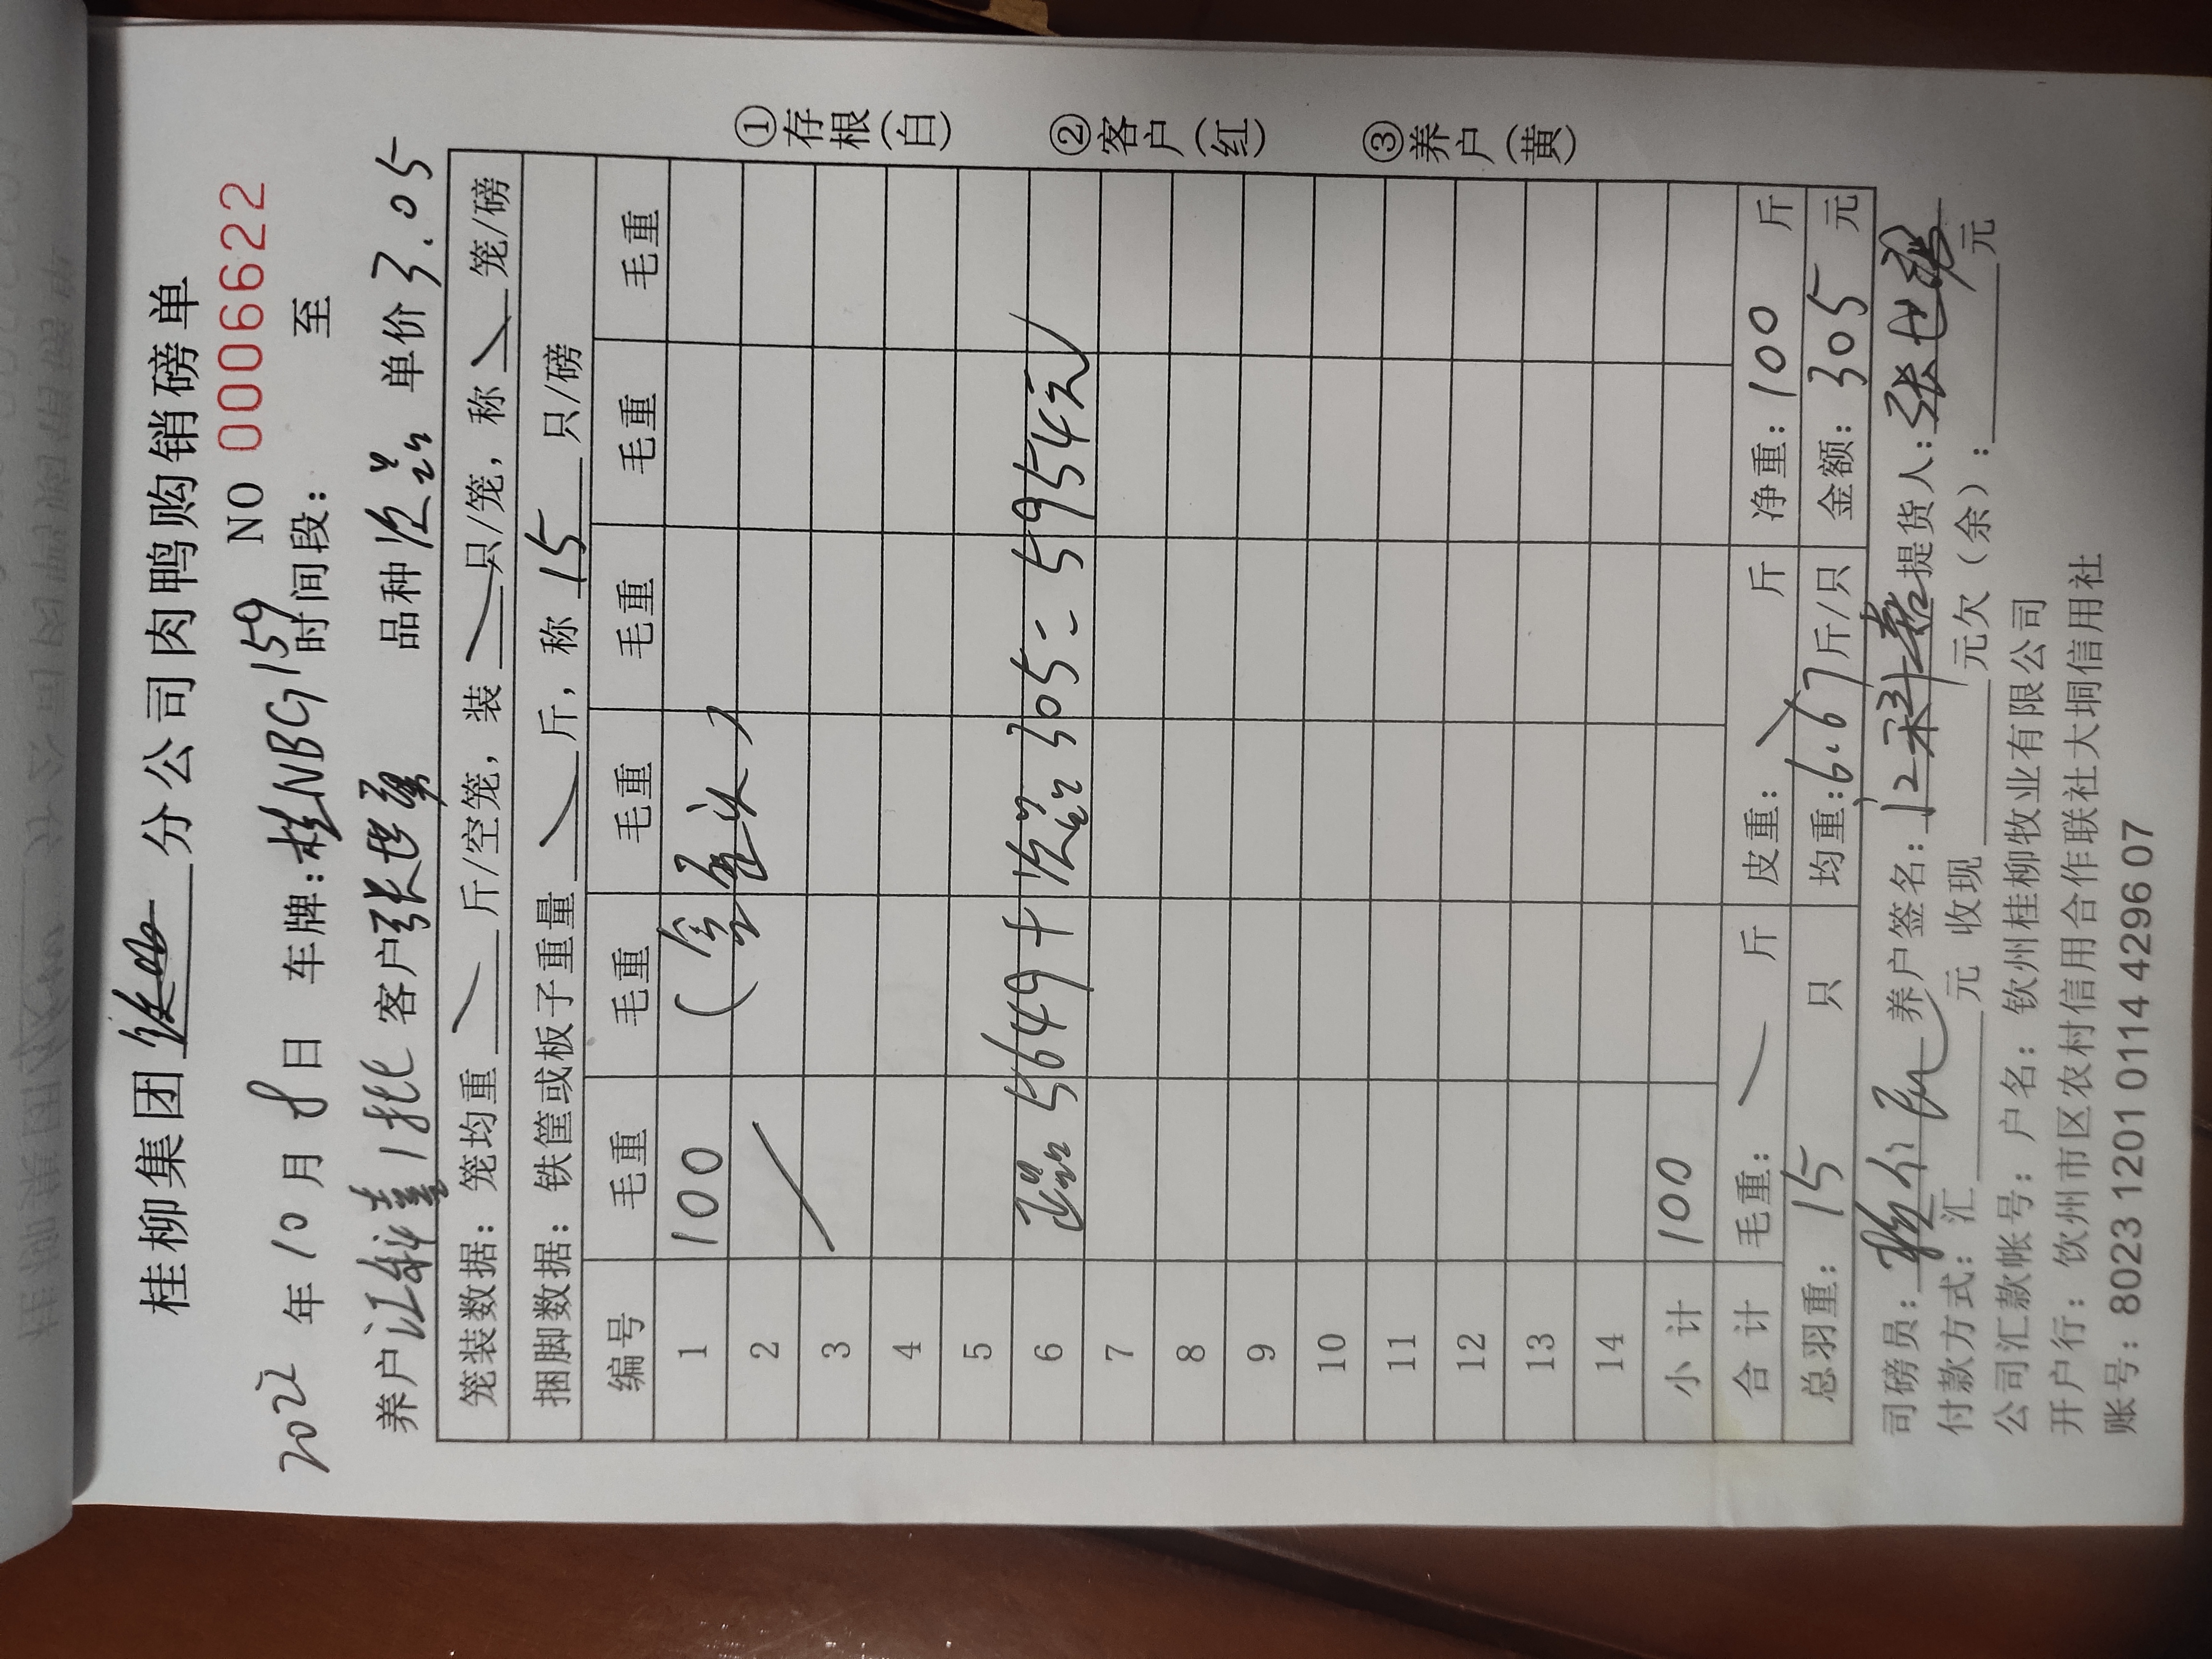 桂柳集团 分公司肉鸭购销磅单
NO 0006622
2022 年 10 月 8 日 车牌:桂NBG159 时间段: 至
养户 江科喜 1批 客户 张世强 品种 次品 单价 3.05
笼装数据:笼均重 斤/空笼,装 只/笼,称 笼/磅
捆脚数据:铁筐或板子重量 斤,称 15 只/磅
编号 毛重 毛重 毛重 毛重 毛重 毛重
1 100
2
3
4
5
6 正品 55649 + 次品 305 = 55954元
7
8
9
10
11
12
13
14
小计 100
合计 毛重: 斤 皮重: 斤 净重:100 斤
总羽重:15 只 均重:6.67斤/只 金额:305 元
司磅员: 养户签名:江科喜 提货人:张世强
付款方式:汇 元 收现 元欠(余): 元
公司汇款帐号:户名:钦州桂柳牧业有限公司
开户行:饮州市区农村信用合作联社大垌信用社
账号:8023 1201 0114 4296 07
①存根(白)
②客户(红)
③养户(黄)